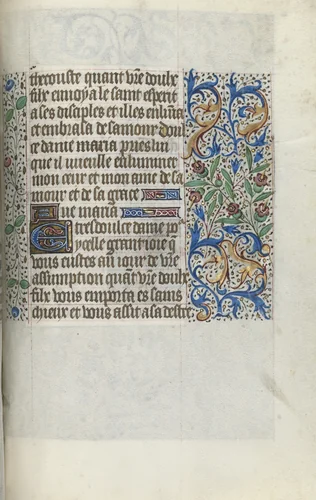 thecouste quant vr̃e doulx
filz enuoya le saint esperit
a ses disciples et illes enlumina
et embrasa de samour doul
ce dame maria pries luy
que il vueille enluminer
mon cuer et mon ame de sa
mour et de sa grace
aue maria
E tresdoulce dame pu
celle grant ioie q̃
vous eustes au iour de vr̃e
assumption quant vr̃e doulx
filz vous emporta es sains
chieux et vous assit a sa destre